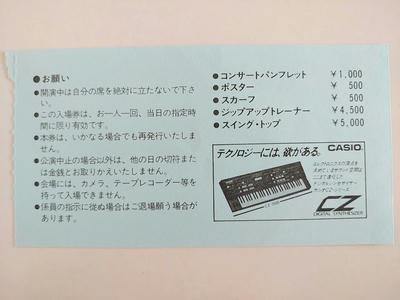 ●お願い
●開演中は自分の席を絶対に立たないで下さい。
●この入場券は、お一人一回、当日の指定時間に限り有効です。
●本券は、いかなる場合でも再発行いたしません。
●公演中止の場合以外は、他の日の切符または金銭とお取りかえいたしません。
●会場には、カメラ、テープレコーダー等を持って入場できません。
●係員の指示に従ぬ場合はご退場願う場合があります。
●コンサートパンフレット ￥1,000
●ポスター ￥ 500
●スカーフ ￥ 500
●ジップアップトレーナー ￥4,500
●スイング・トップ ￥5,000
テクノロジーには、欲がある。 CASIO
CZ
DIGITAL SYNTHESIZER